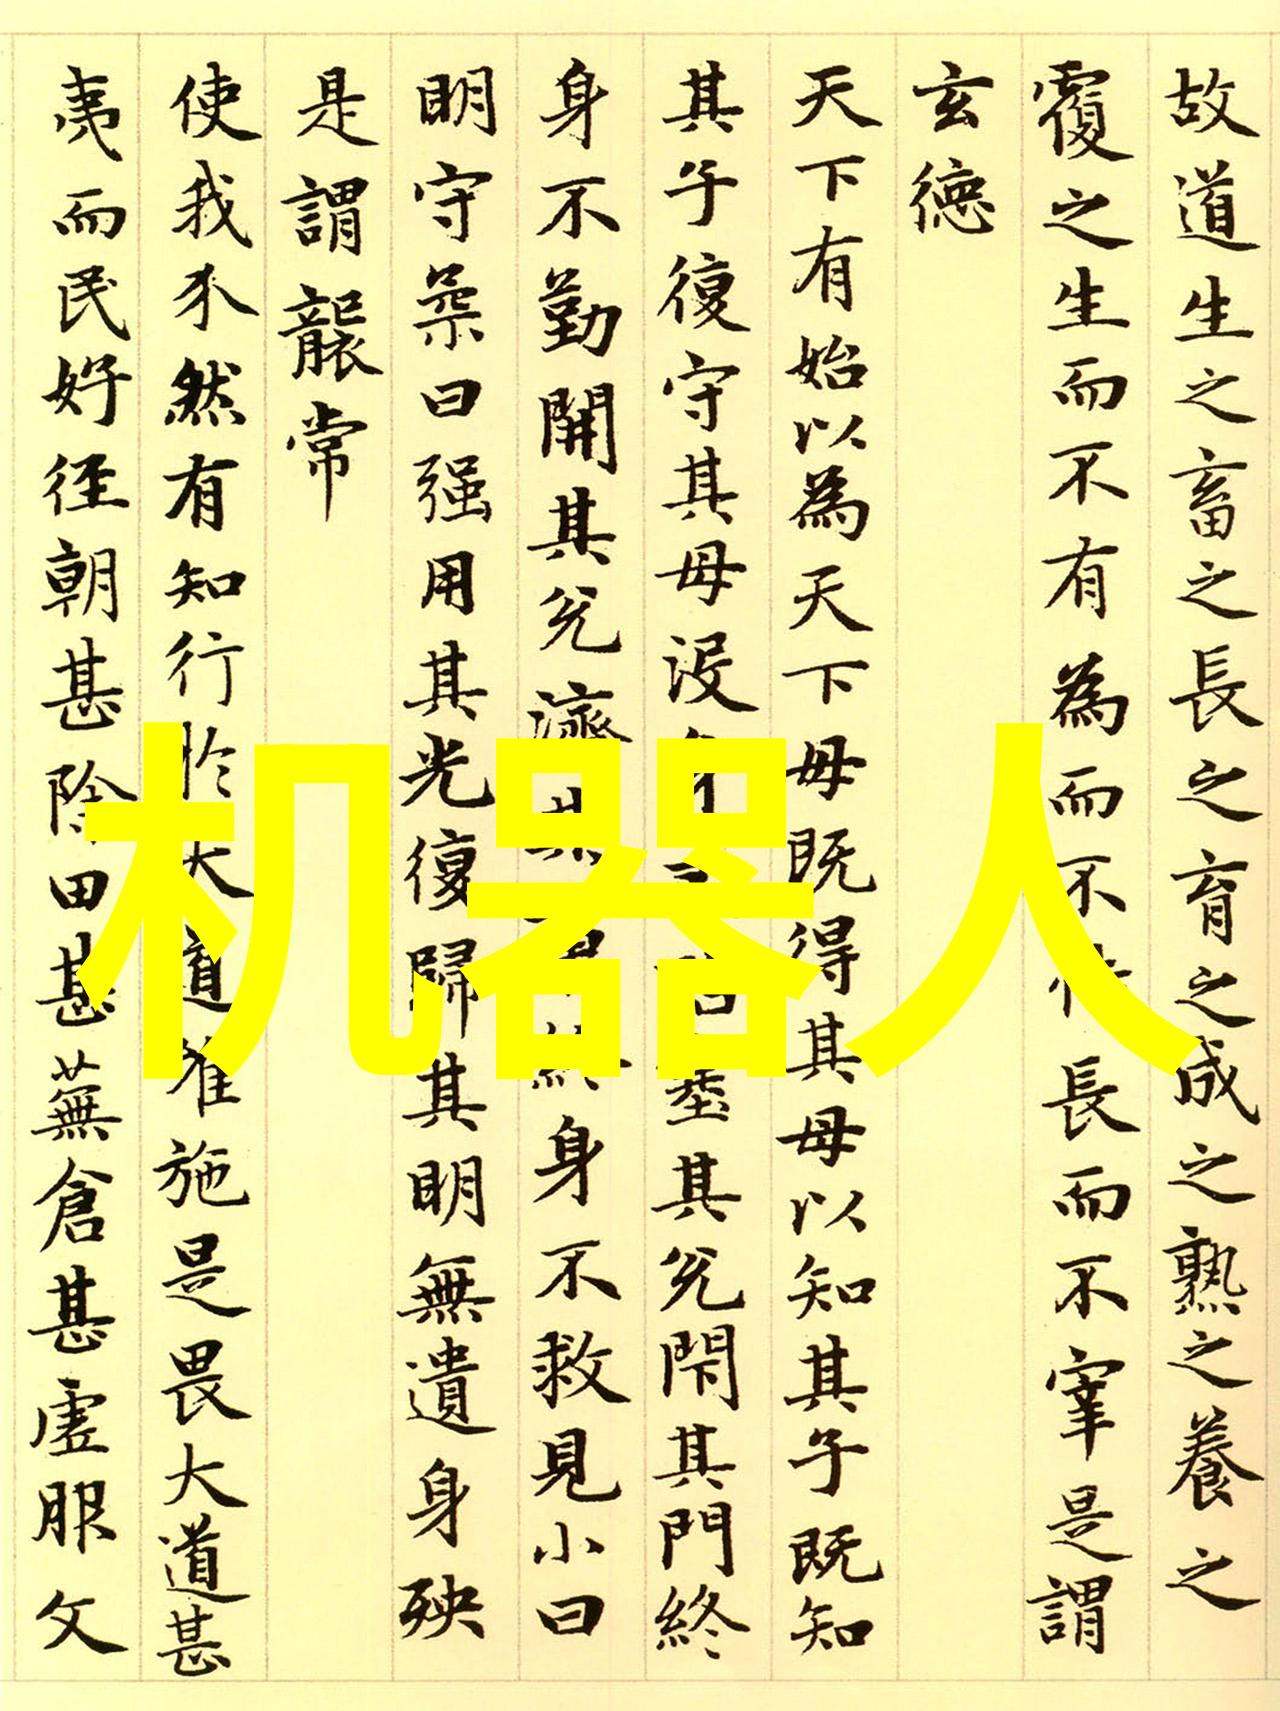 故道生之畜之長之育之成之熟之養之
覆之生而不有為而不恃長而不宰是謂
玄德
天下有始以為天下母既得其母以知其子既知
其子復守其母没身不殆塞其兌閇其門終
身不勤開其兌濟其事終身不救見小曰
明守柔曰强用其光復歸其明無遺身殃
是謂襲常
使我介然有知行於大道唯施是畏大道甚
夷而民好徑朝甚除田甚蕪倉甚虛服文
机器人